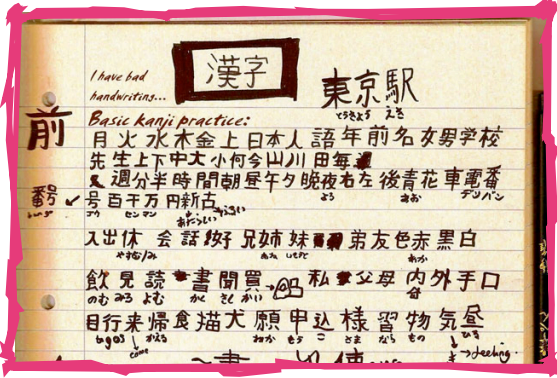 I have bad
handwriting...
漢字
東京駅
とうきょう えき
Basic kanji practice:
前
月火水木金上日本人語年前名女男学校
先生上下中大小何今山川田毎
週分半時間朝昼午夕晩夜右左後青花車電番
よる あお
番号
号百千万円新古
ゴウ センマン あたらしい
入出休会話好兄姉妹弟友色赤黒白
あか
飲見読書聞買 私父母内外手口
のむ みる よむ かく
目行来帰食猫犬願申込様習物気昼
come かえる もう こ さま なら もの ひる
feeling
書 使